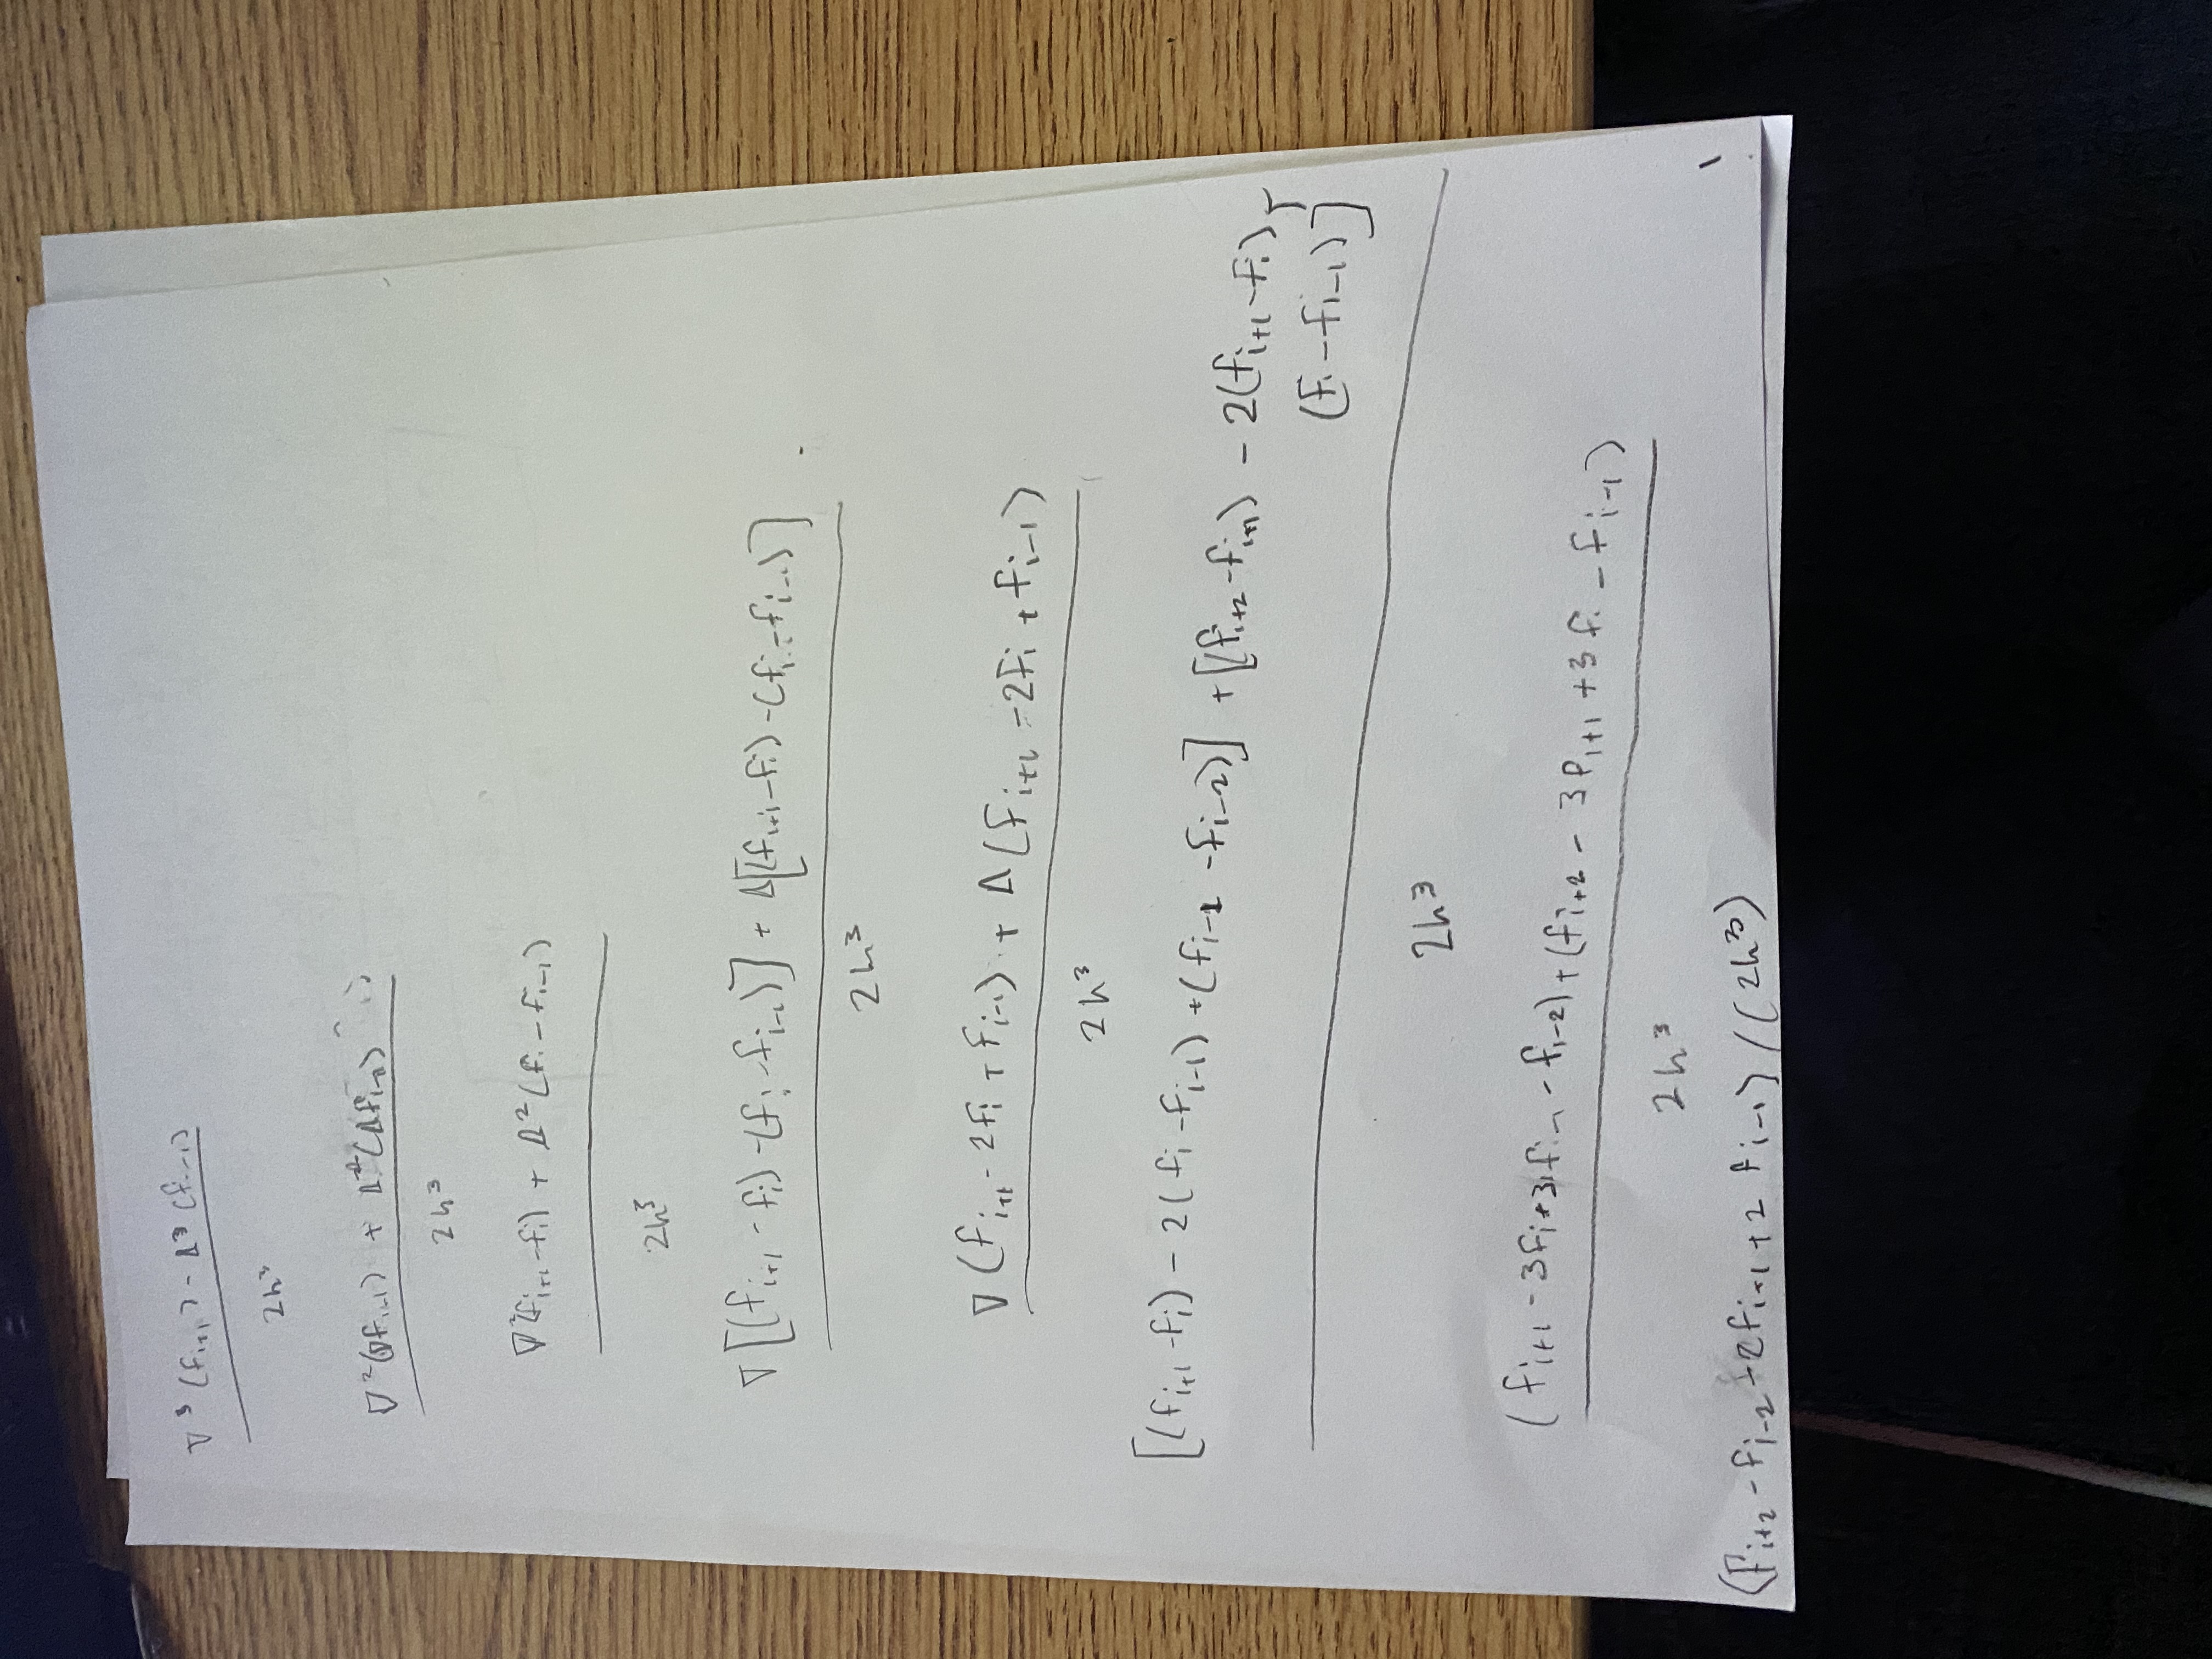 ∇³(fᵢ₊₁) - Δ³(fᵢ₋₁)
2h³
∇²(∇fᵢ₊₁) + Δ²(Δfᵢ₋₁)
2h³
∇²(fᵢ₊₁-fᵢ) + Δ²(fᵢ-fᵢ₋₁)
2h³
∇[(fᵢ₊₁-fᵢ)-(fᵢ-fᵢ₋₁)] + Δ[(fᵢ₊₁-fᵢ)-(fᵢ-fᵢ₋₁)]
2h³
∇(fᵢ₊₁-2fᵢ+fᵢ₋₁) + Δ(fᵢ₊₁-2fᵢ+fᵢ₋₁)
2h³
[(fᵢ₊₁-fᵢ)-2(fᵢ-fᵢ₋₁)+(fᵢ₋₁-fᵢ₋₂)] + [(fᵢ₊₂-fᵢ₊₁)-2(fᵢ₊₁-fᵢ)+
(fᵢ-fᵢ₋₁)]
2h³
(fᵢ₊₁-3fᵢ+3fᵢ₋₁-fᵢ₋₂)+(fᵢ₊₂-3fᵢ₊₁+3fᵢ-fᵢ₋₁)
2h³
(fᵢ₊₂-fᵢ₋₂-2fᵢ₊₁+2fᵢ₋₁)/(2h³)